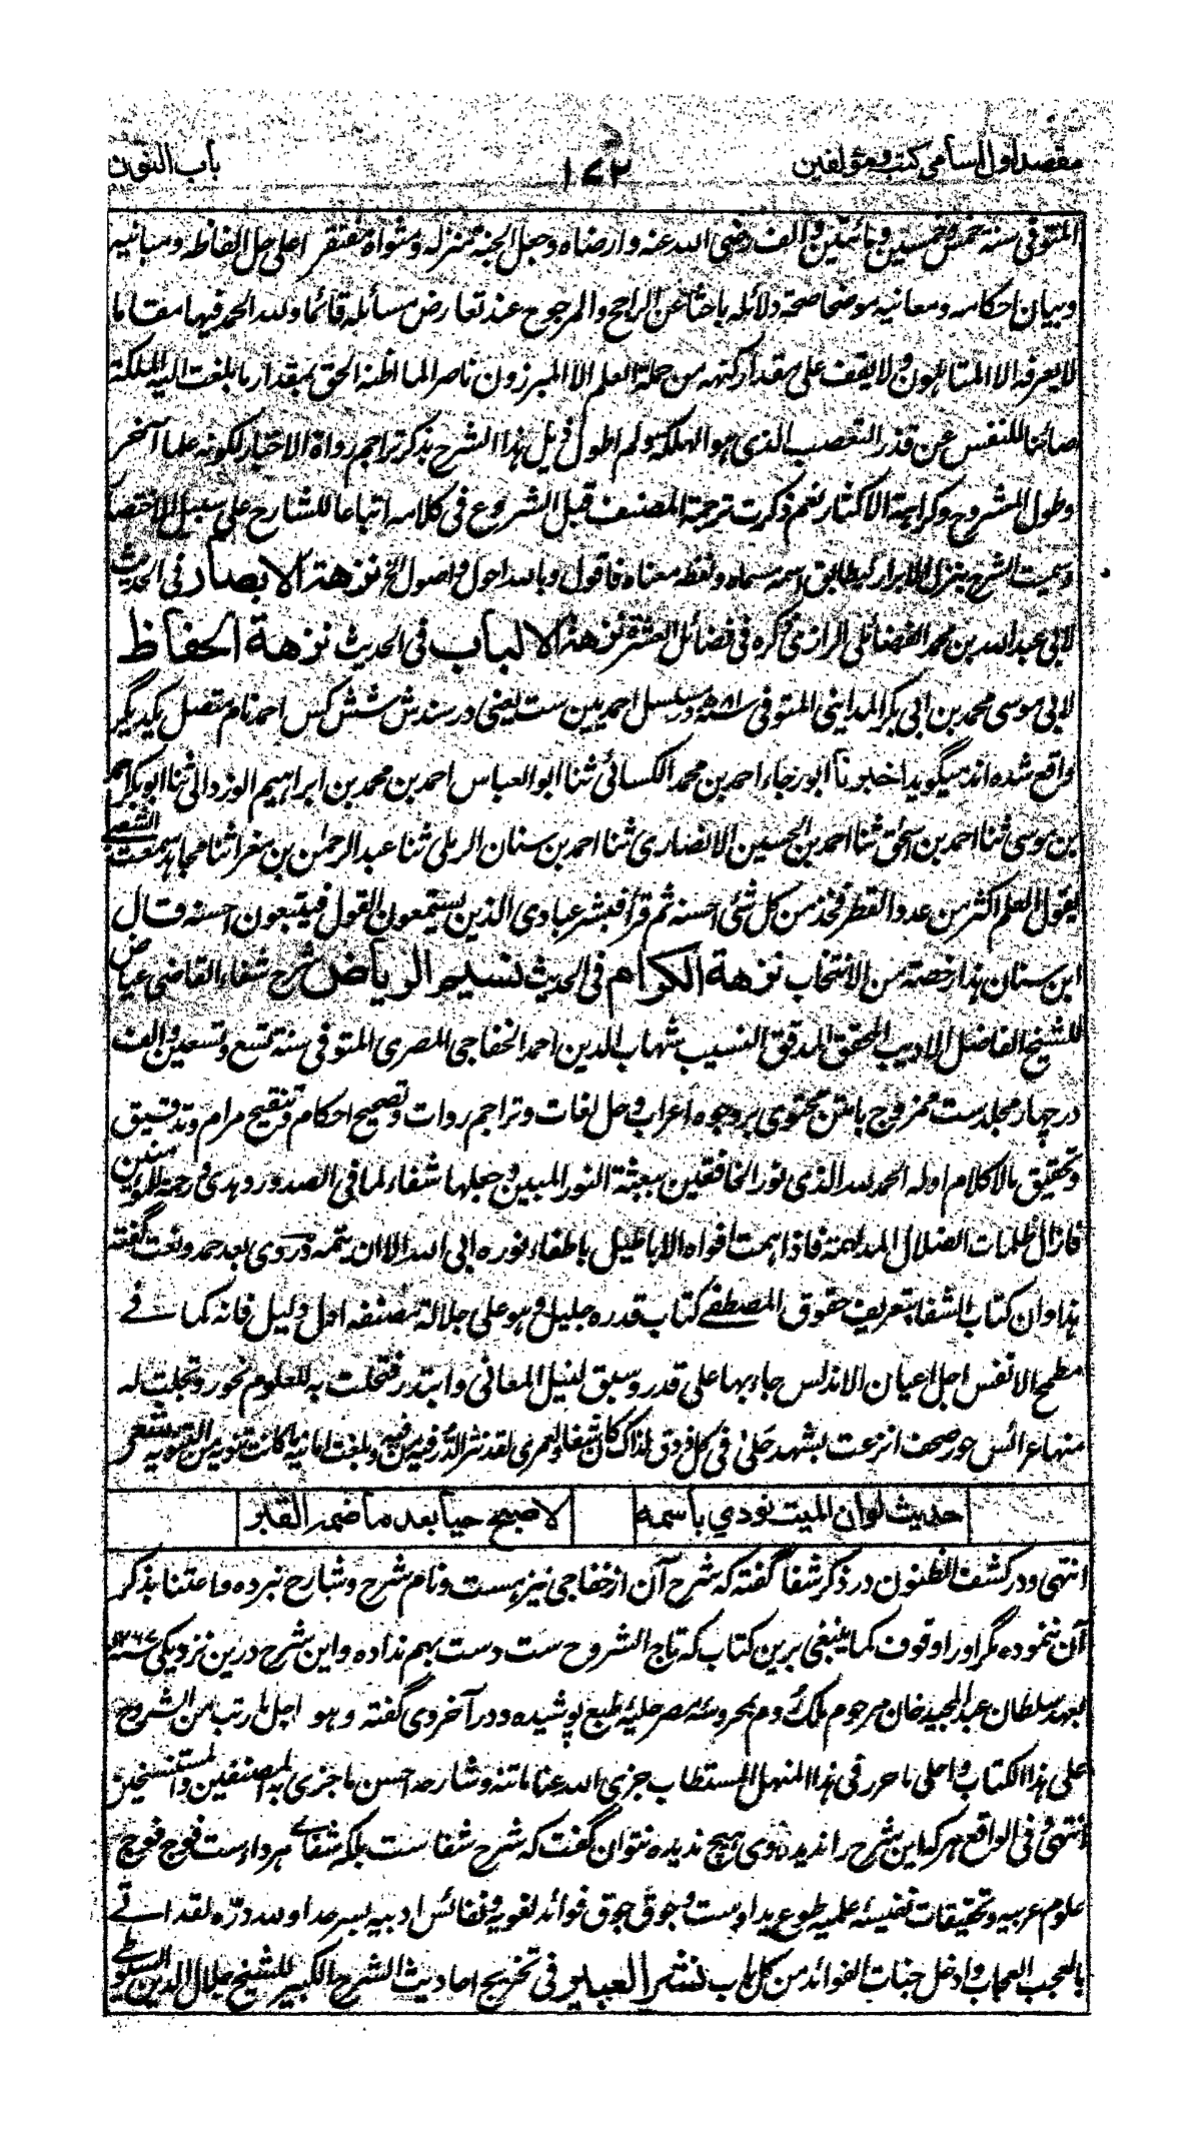 مقصد اول اسامی کتب و مؤلفین
۱۷۲
باب النون
المتوفی سنة خمس وخمسین ومائتین والف رضی الله عنه وارضاه وجعل الجنة منزله ومثواه مقتصرا علی حل الفاظه ومبانیه
وبیان احکامه ومعانیه موضحا صحة دلائله باحثا عن الراجح والمرجوح عند تعارض مسائله قائما ولله الحمد فیها مقاما
لا یعرفه الا المتأهلون ولا یقف علی مقدار کنهه من حملة العلم الا المبرزون ناصرا لما اظنه الحق بمقدار ما بلغت الیه الملکة
صائنا للنفس عن قذر التعصب الذی هو الهلکة ولم اطول ذیل هذا الشرح بذکر تراجم رواة الاخبار لکونه علما آخر
وطول الشروح وکراهة الاکثار نعم ذکرت ترجمة المصنف قبل الشروع فی کلامه اتباعا للشارح علی سبیل الاختصار
وسمیت الشرح بنزل الابرار لیطابق اسمه مسماه ولفظه معناه فاقول وبالله احول واصول الخ نزهة الابصار فی الحدیث
لابی عبد الله بن محمد الفضائلی الرازی ذکره فی فضائل العشرة نزهة الالباب فی الحدیث نزهة الحفاظ
لابی موسی محمد بن ابی بکر المداینی المتوفی سنة ۵۸۱ در مسلسل احمدیین ست یعنی در سندش شش کس احمد نام متصل یکدیگر
واقع شده اند میگوید اخبرنا ابو رجاء احمد بن محمد الکسائی ثنا ابو العباس احمد بن محمد بن ابراهیم الوزدالی ثنا ابو بکر احمد
بن موسی ثنا احمد بن اسحٰق ثنا احمد بن الحسین الانصاری ثنا احمد بن سنان الرملی ثنا عبد الرحمٰن بن مغرا ثنا مجاهد سمعت الشعبی
یقول العلم اکثر من عدد القطر فخذ من کل شئ احسنه ثم قرأ فبشر عبادی الذین یستمعون القول فیتبعون احسنه قال
ابن سنان هذا رخصة من الانتخاب نزهة الکرام فی الحدیث نسیم الریاض شرح شفاء القاضی عیاض
للشیخ الفاضل الادیب المحقق المدقق النسیب شهاب الدین احمد الخفاجی المصری المتوفی سنة تسع وتسعین والف
در چهار مجلد ست ممزوج بامتن محتوی بر وجوه اعراب وحل لغات وتراجم روات وتصحیح احکام وتنقیح مرام وتدقیق
وتحقیق بالاکلام اوله الحمد لله الذی نور الخافقین ببعثة النور المبین وجعلها شفاء لما فی الصدور وهدی ورحمة للمؤمنین
فازال ظلمات الضلال المدلهمة فاذا همت افواه الاباطیل باطفاء نوره ابی الله الا ان یتمه ودروی بعد حمد ونعت گفته
هذا وان کتاب الشفا بتعریف حقوق المصطفی کتاب قدره جلیل وهو علی جلالة مصنفه ادل دلیل فانه کما فی
مطمح الانفس اجل اعیان الاندلس جاء بها علی قدر وسبق لنیل المعانی وابتدر فتحلت به للعلوم نحور وتجلت له
منها عرائس حور صحف انزعت بشهد حلی فی کل ذوق لذاک کان شفا ولعمری لقد نثر الدر فیه من فیه وبلغت امانیه کانت تنویه من التنویه شعر
حدیث لو ان المیت نودی باسمه
لاصبح حیا بعد ما ضمه القبر
انتهی ودر کشف الظنون در ذکر شفا گفته که شرح آن از خفاجی نیز هست ونام شرح وشارح نبرده واعتنا بذکر
آن ننموده مگر او را وقوف کما ینبغی برین کتاب که تاج الشروح ست دست بهم نداده واین شرح درین نزدیکی سنه ۱۲۶۷
بعهد سلطان عبد المجید خان مرحوم ملک روم بمحروسۀ مصر حلیۀ طبع پوشیده ودر آخر وی گفته وهو اجل ما رتب من الشروح
علی هذا الکتاب واحلی ما حرر فی هذا المنهل المستطاب جزی الله عنا ماتنه وشارحه احسن ما جزی به المصنفین والمستنسخین
انتهی وفی الواقع هر که این شرح را ندیده وی هیچ ندیده نتوان گفت که شرح شفا ست بلکه شفای هر داء ست فوج فوج
علوم عربیه وتحقیقات نفیسۀ علمیه طوع ید اوست وجوق جوق فوائد لغویه ونفائس ادبیه بسر مد او لله دره لقد اتی
بالعجب العجاب وادخل جنات الفوائد من کل باب نشر العبیر فی تخریج احادیث الشرح الکبیر للشیخ جلال الدین السیوطی